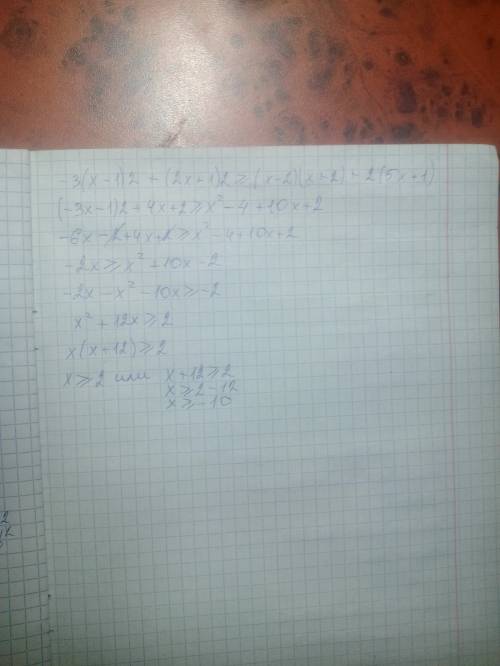 -3(x-1)2 + (2x+1)2 ≥ (x-2)(x+2) + 2(5x+1)
(-3x-1)2 + 4x+2 ≥ x² - 4 + 10x + 2
-6x - 2 + 4x + 2 ≥ x² - 4 + 10x + 2
-2x ≥ x² + 10x - 2
-2x - x² - 10x ≥ -2
x² + 12x ≥ 2
x(x+12) ≥ 2
x ≥ 2 или x+12 ≥ 2
x ≥ 2-12
x ≥ -10
2